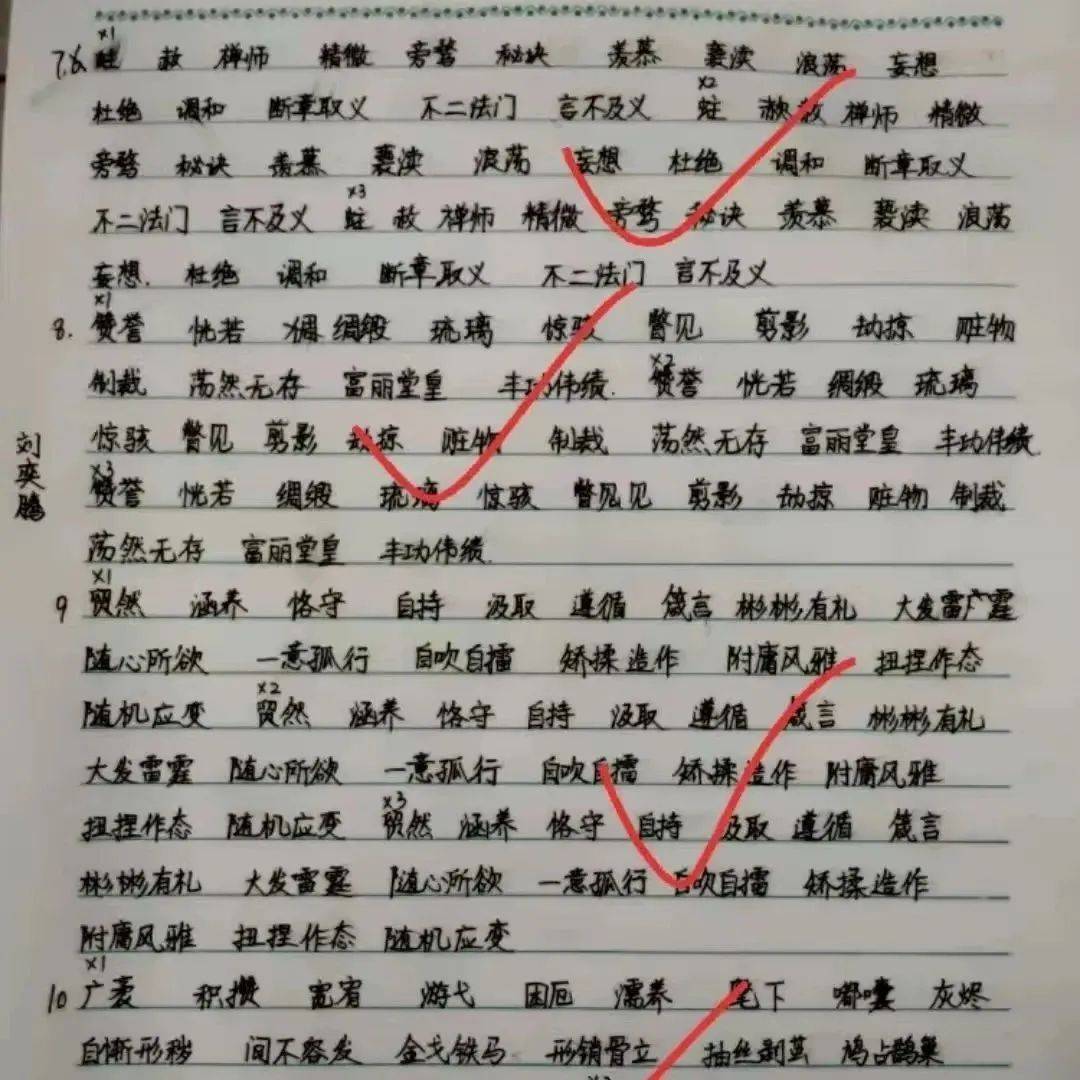 ×1
7.8. 蛀 赦 禅师 精微 旁骛 秘诀 羡慕 亵渎 浪荡 妄想
×2
杜绝 调和 断章取义 不二法门 言不及义 蛀 赦 禅师 精微
旁骛 秘诀 羡慕 亵渎 浪荡 妄想 杜绝 调和 断章取义
×3
不二法门 言不及义 蛀 赦 禅师 精微 旁骛 秘诀 羡慕 亵渎 浪荡
妄想. 杜绝 调和 断章取义 不二法门 言不及义
×1
8. 赞誉 恍若 绸缎 琉璃 惊骇 瞥见 剪影 劫掠 赃物
×2
制裁 荡然无存 富丽堂皇 丰功伟绩. 赞誉 恍若 绸缎 琉璃
惊骇 瞥见 剪影 劫掠 赃物 制裁 荡然无存 富丽堂皇 丰功伟绩.
×3
赞誉 恍若 绸缎 琉璃 惊骇 瞥见见 剪影 劫掠 赃物 制裁
荡然无存 富丽堂皇 丰功伟绩.
刘奕鹏
×1
9 贸然 涵养 恪守 自持 汲取 遵循 箴言 彬彬有礼 大发雷霆
随心所欲 一意孤行 自吹自擂 矫揉造作 附庸风雅 扭捏作态
×2
随机应变 贸然 涵养 恪守 自持 汲取 遵循 箴言 彬彬有礼
大发雷霆 随心所欲 一意孤行 自吹自擂 矫揉造作 附庸风雅
×3
扭捏作态 随机应变 贸然 涵养 恪守 自持 汲取 遵循 箴言
彬彬有礼 大发雷霆 随心所欲 一意孤行 自吹自擂 矫揉造作
附庸风雅 扭捏作态 随机应变
×1
10 广袤 积攒 宽宥 游弋 困厄 濡养 笔下 嘟囔 灰烬
自惭形秽 间不容发 金戈铁马 形销骨立 抽丝剥茧 鸠占鹊巢